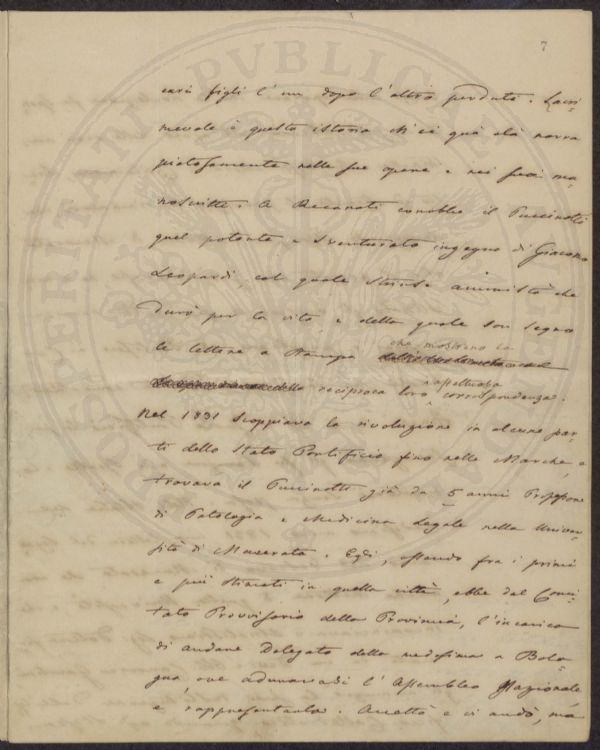 7
cari figli l'un dopo l'altro perduti. Lacri=
mevole è questa istoria ch'ei già
pietosamente nelle sue opere e nei suoi ma=
noscritti. A Recanati conobbe il Puccinotti
quel potente e sventurato ingegno di Giacomo
Leopardi, col quale strinse amistà che
durò per la vita, e della quale son segno
le lettere a stampa
che mostrano la
della reciproca loro rispettosa corrispondenza.
Nel 1831 scoppiava la rivoluzione in alcune par=
ti dello Stato Pontificio fino nelle Marche, e
trovava il Puccinotti già da 5 anni Professore
di Patologia e Medicina Legale nella Univer=
sità di Macerata. Egli, essendo fra i primi
e più stimati in quella città, ebbe dal Comi=
tato Provvisorio della Provincia, l'incarico
di andare Delegato della medesima a Bolo=
gna, ove adunavasi l'Assemblea Nazionale,
e rappresentarla. Accettò e ci andò, ma
PROSPERITATI PVBLICAE